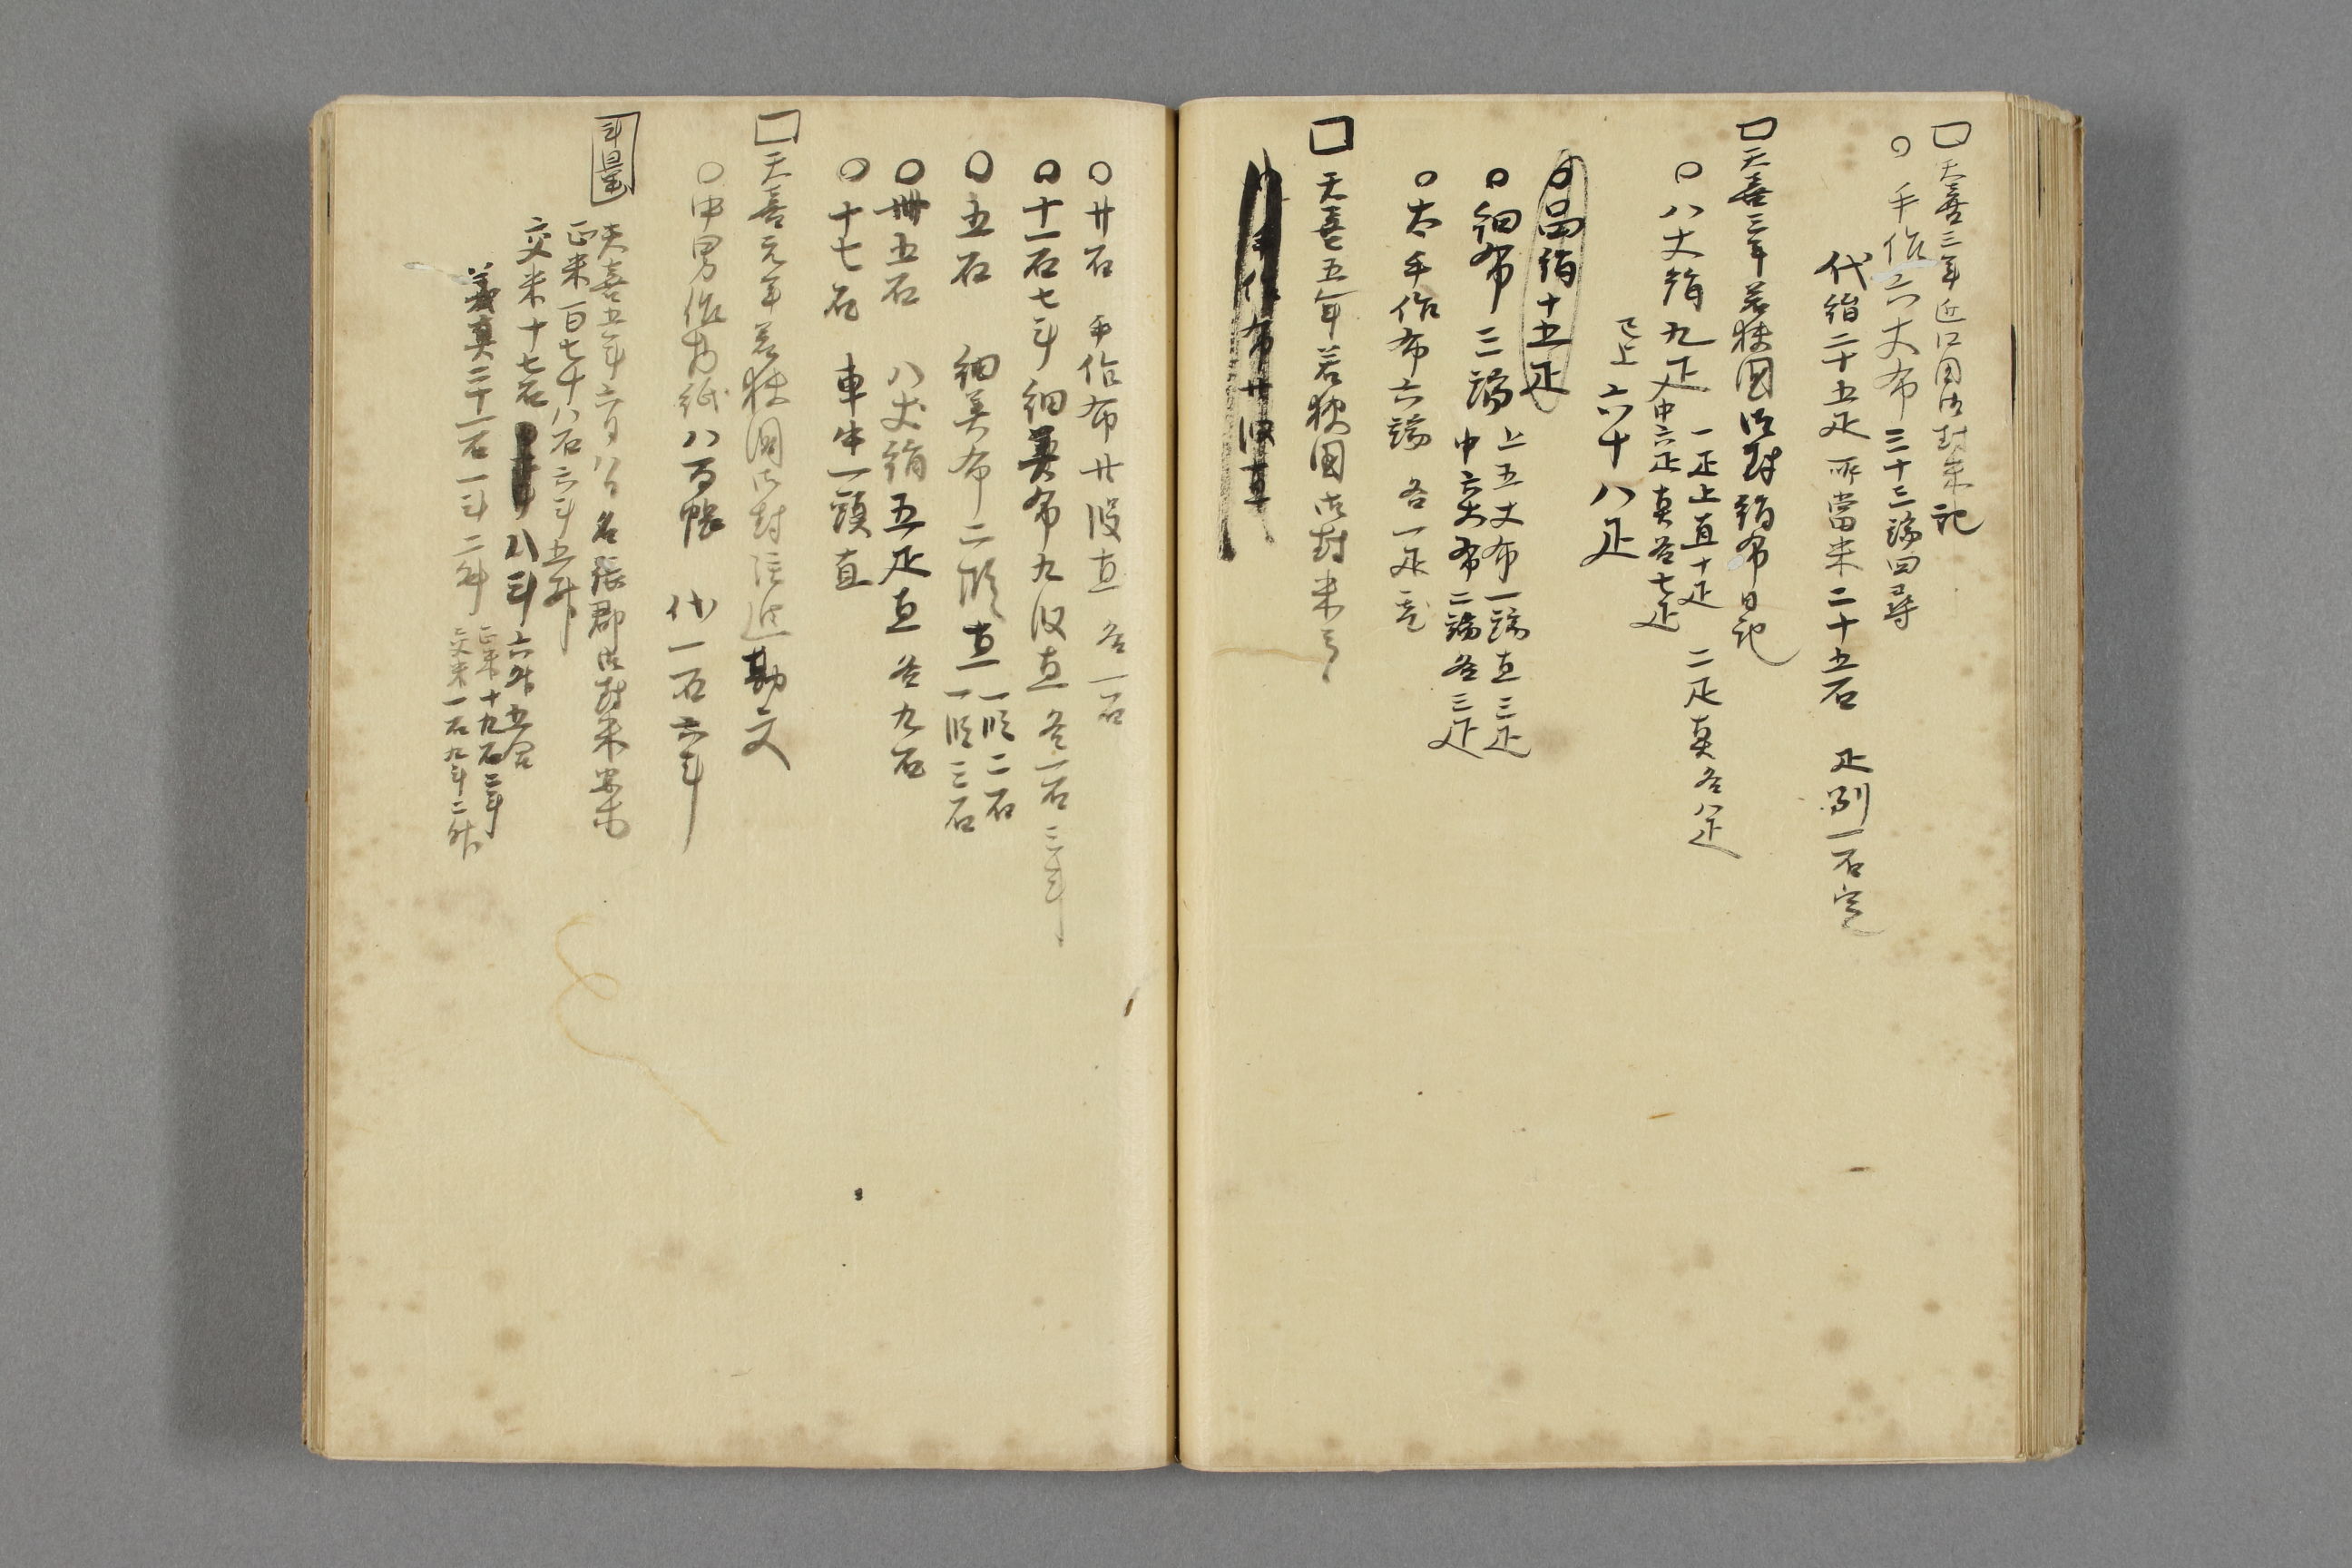 □天喜三年近江国御封米記
○手作六丈布三十三端四尋
代絹二十五疋 所當米二十五石 疋別一石定
□天喜三年若狹國御封絹布日記
○八丈絹九疋 一疋上直十疋 二疋直各八疋
中六疋直各七疋
已上六十八疋
○品絹十五疋
○細布三端 上五丈布一端直三疋
中六丈布二端各三疋
○太手作布六端 各一疋定
□天喜五年若狹國御封米
手作布廿段直
○廿石 手作布廿段直 各一石
○十一石七斗 細美布九段直 各一石三斗
○五石 細美布二段直 一段二石
一段三石
○卌五石 八丈絹五疋直 各九石
○十七石 車牛一頭直
□天喜元年若狹國御封注進勘文
○中男作物紙八百帳 代一石六斗
斗量
天喜五年六月八日名張郡御封米
正米一百七十八石六斗五升
交米十七石八斗六升五合
義真二十一石一斗二升 正米十九石二斗
交米一石九斗二升